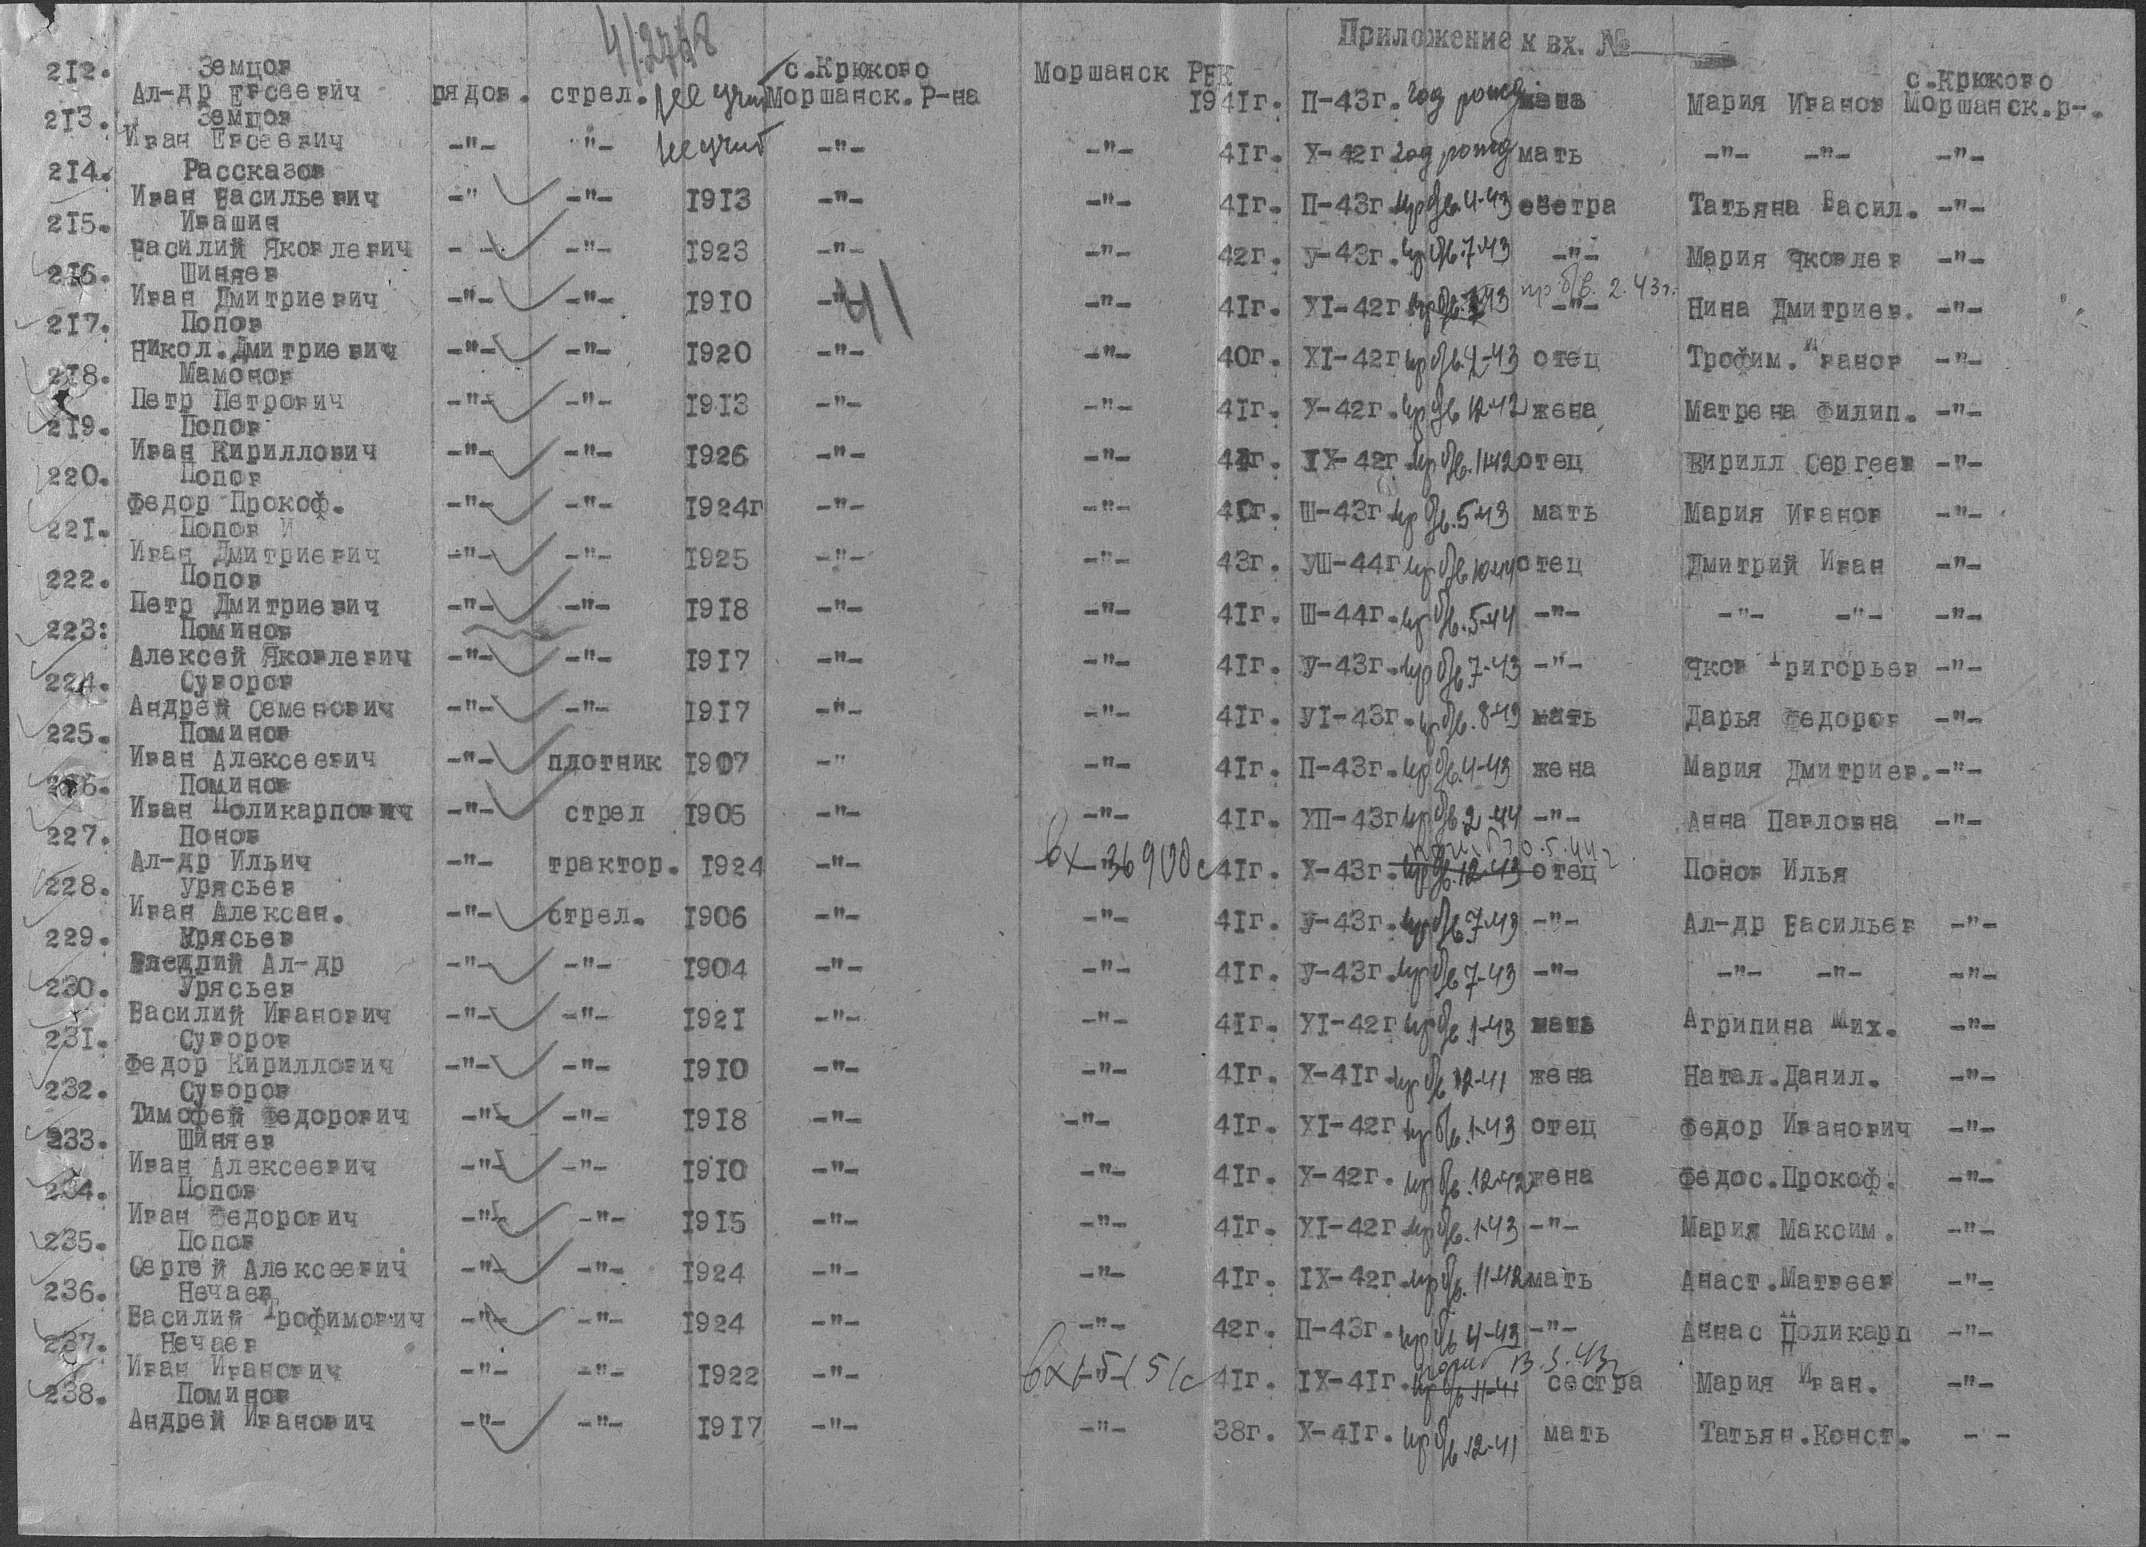 412768
Приложение к вх. №
212. Земцов с.Крюково Моршанск РВК с.Крюково
Ал-др Евсеевич рядов. стрел. не учит Моршанск.Р-на 1941г. П-43г. год рожд мать Мария Иванов Моршанск.р-.
213. Земцов
Иван Евсеевич -"- -"- не учит -"- -"- 41г. Х-42г год рожд мать -"- -"- -"-
214. Рассказов
Иван Васильевич -" -"- 1913 -"- -"- 41г. П-43г. пр бв.4-43 сестра Татьяна Васил. -"-
215. Ивашин
Василий Яковлевич - - -"- 1923 -"- -"- 42г. У-43г. пр бв.7-43 -"- Мария Яковлев -"-
216. Шиняев пр бв. 2.43г.
Иван Дмитриевич -"- -"- 1910 -"- 41 -"- 41г. XI-42г пр бв. 43 -"- Нина Дмитриев. -"-
217. Попов
Никол.Дмитриевич -"- -"- 1920 -"- -"- 40г. XI-42г пр бв.4-43 отец Трофим.Иванов -"-
218. Мамонов
Петр Петрович -"- -"- 1913 -"- -"- 41г. Х-42г. пр бв 12-42 жена Матрена Филип. -"-
219. Попов
Иван Кириллович -"- -"- 1926 -"- -"- 44г. IX-42г пр бв.11-42 отец Кирилл Сергеев -"-
220. Попов
Федор Прокоф. -"- -"- 1924г -"- -"- 41г. Ш-43г пр бв.5-43 мать Мария Иванов -"-
221. Попов И
Иван Дмитриевич -"- -"- 1925 -"- -"- 43г. УШ-44г пр бв 10-44 отец Дмитрий Иван -"-
222. Попов
Петр Дмитриевич -"- -"- 1918 -"- -"- 41г. Ш-44г. пр бв.5-44 -"- -"- -"- -"-
223: Поминов
Алексей Яковлевич -"- -"- 1917 -"- -"- 41г. У-43г. пр бв.7-43 -"- Яков Григорьев -"-
224. Суворов
Андрей Семенович -"- -"- 1917 -"- -"- 41г. УI-43г. пр бв.8-43 мать Дарья Федоров -"-
225. Поминов
Иван Алексеевич -"- плотник 1907 -" -"- 41г. П-43г. пр бв.4-43 жена Мария Дмитриев. -"-
226. Поминов
Иван Поликарпович -"- стрел 1905 -"- -"- 41г. ХП-43г пр бв 2-44 -"- Анна Павловна -"-
227. Понов 30.5.44г
Ал-др Ильич -"- трактор. 1924 -"- вх-36900с 41г. Х-43г. пр бв.12-43 отец Понов Илья
228. Урясьев
Иван Алексан. -"- стрел. 1906 -"- -"- 41г. У-43г. пр бв 7-43 -"- Ал-др Васильев -"-
229. Урясьев
Василий Ал-др -"- -"- 1904 -"- -"- 41г. У-43г. пр бв 7-43 -"- -"- -"- -"-
230. Урясьев
Василий Иванович -"- -"- 1921 -"- -"- 41г. XI-42г пр бв.1-43 мать Агрипина Мих. -"-
231. Суворов
Федор Кириллович -"- -"- 1910 -"- -"- 41г. Х-41г. пр бв 12-41 жена Натал.Данил. -"-
232. Суворов
Тимофей Федорович -"- -"- 1918 -"- -"- 41г. XI-42г пр бв.1-43 отец Федор Иванович -"-
233. Шиняев
Иван Алексеевич -"- -"- 1910 -"- -"- 41г. Х-42г. пр бв.12-42 жена Федос.Прокоф. -"-
234. Попов
Иван Федорович -"- -"- 1915 -"- -"- 41г. XI-42г пр бв.1-43 -"- Мария Максим. -"-
235. Попов
Сергей Алексеевич -"- -"- 1924 -"- -"- 41г. IX-42г. пр бв.11-42 мать Анаст.Матвеев -"-
236. Нечаев
Василий Трофимович -"- -"- 1924 -"- -"- 42г. П-43г. пр бв 4-43 -"- Аннас Поликарп -"-
237. Нечаев погиб 13.3.43г
Иван Иванович -"- -"- 1922 -"- 41г. IX-41г. пр бв 11-41 сестра Мария Иван. -"-
238. Поминов
Андрей Иванович -"- -"- 1917 -"- -"- 38г. Х-41г. пр бв.12-41 мать Татьян.Конст. - -